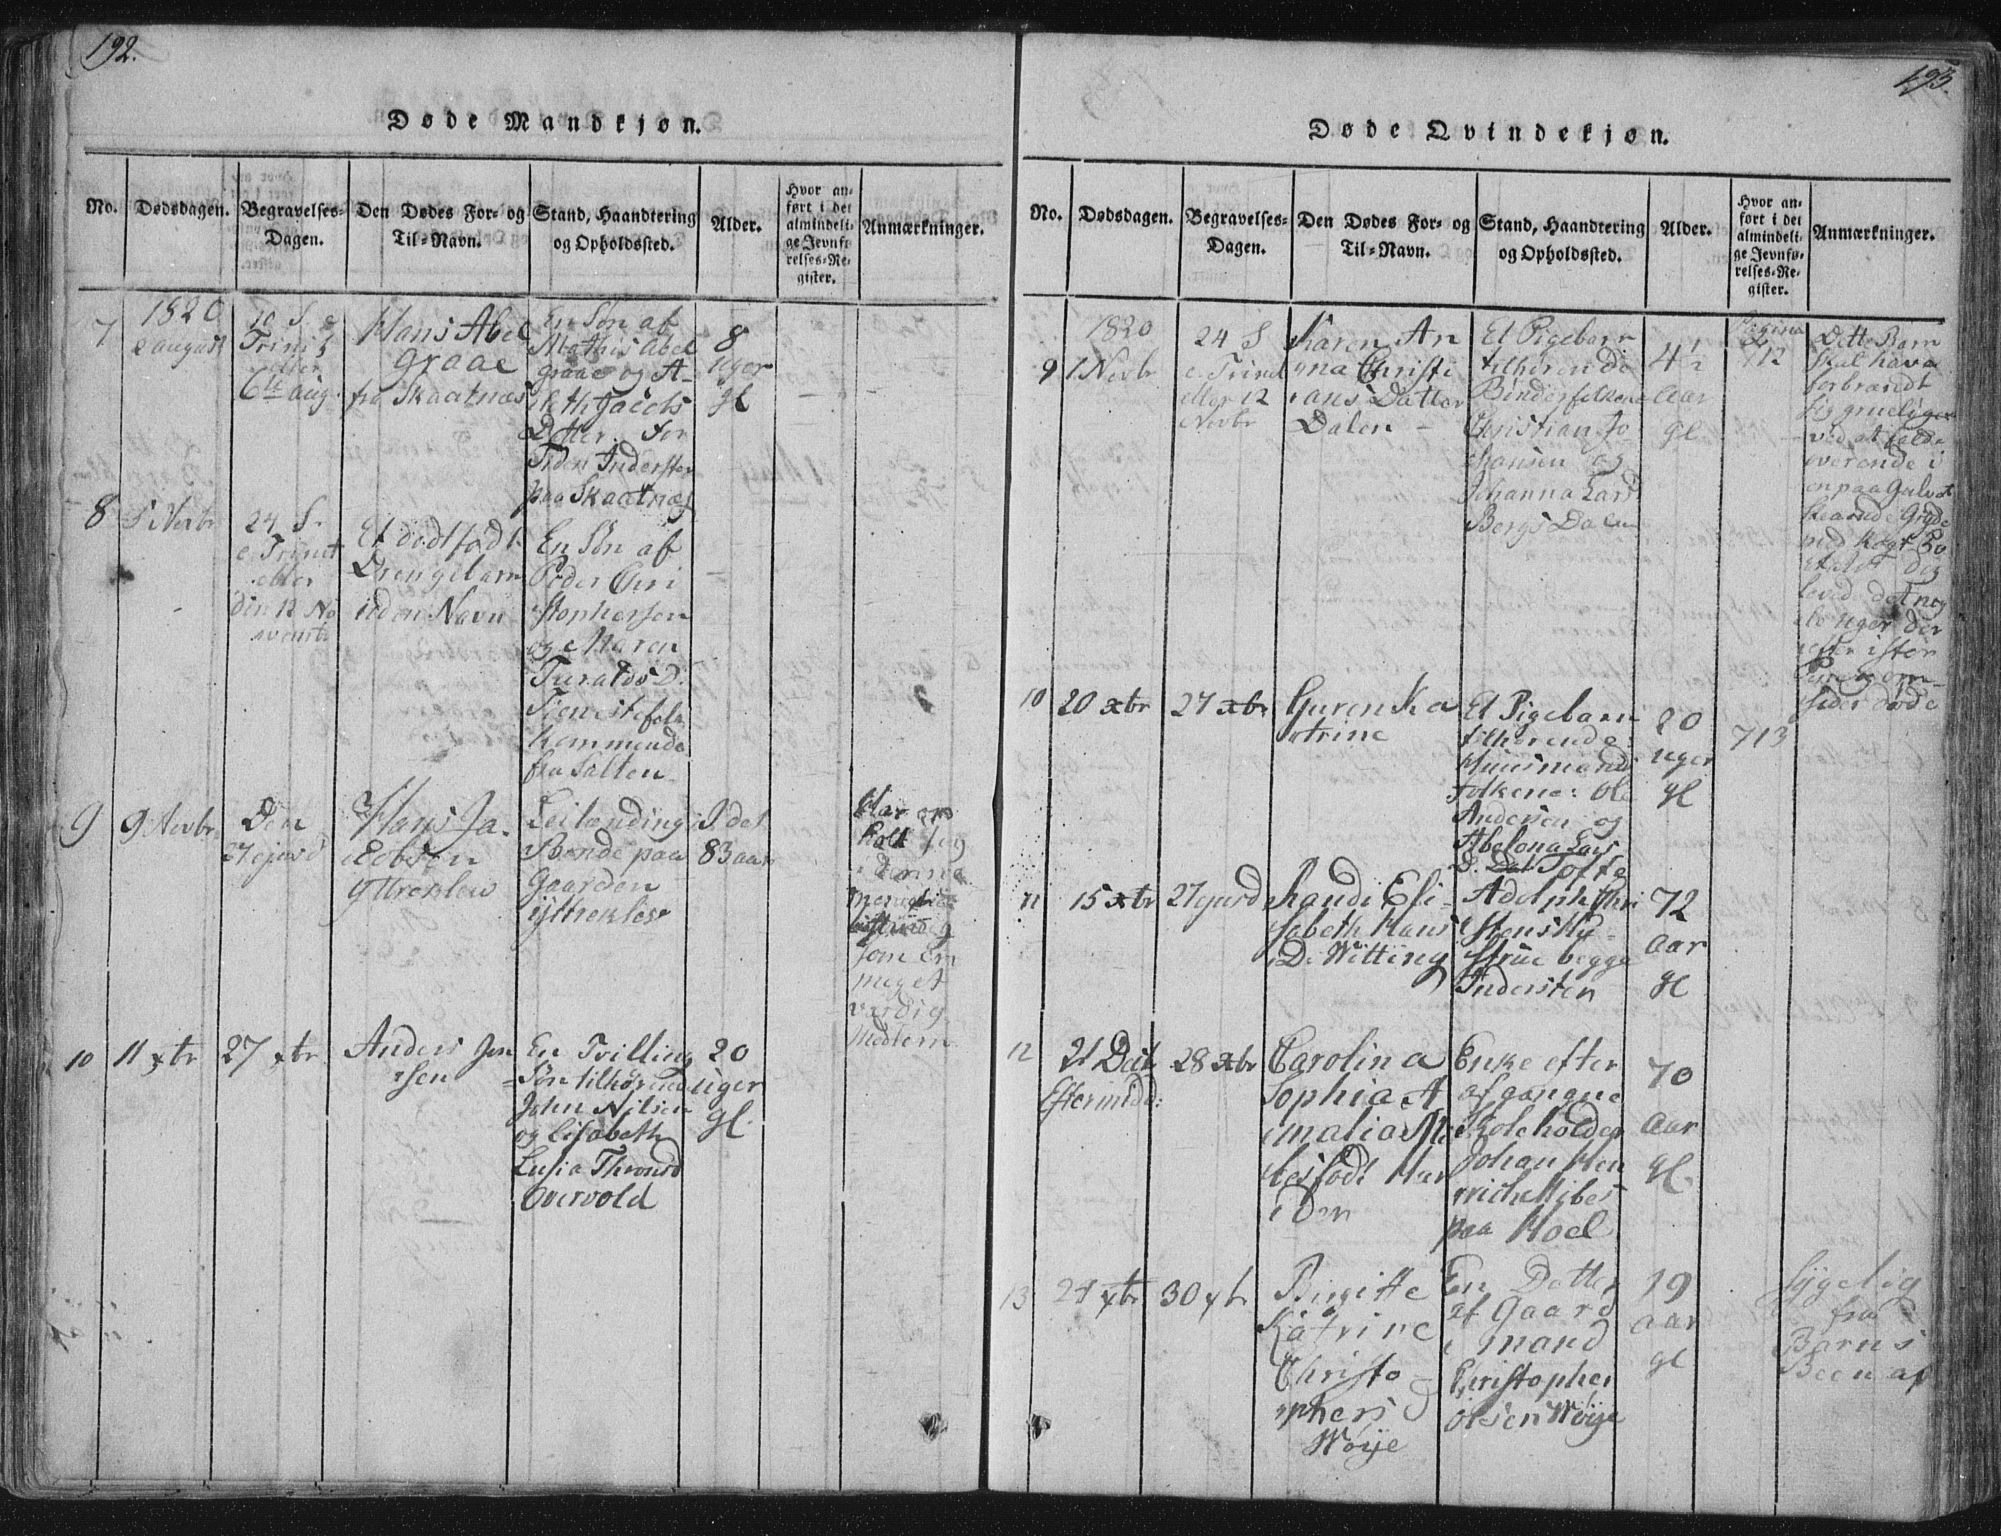 192.
Døde Mandkjøn.
No.
Dødsdagen.
Begravelses-
Dagen.
Den Dødes For- og
Til-Navn.
Stand, Haandtering
og Opholdssted.
Alder.
Hvor an-
ført i det
almindeli-
ge Jevnfø-
relses-Re-
gister.
Anmærkninger.
7
1820
2 august
10 S. e
Trinit
eller
6te aug.
Hans Abel
Graae
fra Skaatnæs
En Søn af
Mathis Abel
Graae og
Jacobs
Datter. for
Tiden Inderster
paa Skaatnæs
8
Uger
gl
8
5 Novbr
24 S.
e. Trinit
eller
den 12 No
vembr
Et dødtfødt
Drengebarn
uden Navn
En Søn af
Peder Chri
stophersen
og Maren
Turalds D.
Tienistefolk
kommende
fra Salten
9
9 Novbr
Den
27 ejusd
Hans Ja-
cobsen
Yttreklev
Leilænding
Bonde paa
Gaarden
Yttreklev
I det
83 aar
Har op
holt sig
i denne
menighed
som en
meget
værdig
Medlem
10
11 xbr
27 xbr
Anders Jen
sen
En Tvilling
Søn tilhørende
John Nilsen
og Lisabeth
Lusia Thronsd
Overvold
20
uger
gl.
193.
Døde Qvindekjøn.
No.
Dødsdagen.
Begravelses-
Dagen.
Den Dødes For- og
Til-Navn.
Stand, Haandtering
og Opholdssted.
Alder.
Hvor an-
ført i det
almindeli-
ge Jevnfø-
relses-Re-
gister.
Anmærkninger.
9
1820
1 Novbr
24 S
e. Trinit
eller 12
Novbr
Karen An
na Christi
ans Datter
Dalen
Et Pigebarn
tilhørende
Bønderfolkene
Christian Jo
hansen og
Johanna Lars
Bergs Dalen
4½
aar
gl
Pagina
712
Dette Barn
skal have
forbrændt
sig grueligen
ved at falde
overende i
en paa Gulvet
staaende Gryde
med kogt
leved det
længer der
efter
Pine om-
sider døde
10
20 xbr
27 xbr
Guren Ka
trine
Et Pigebarn
tilhørende
Huusmands
Folkene: Ole
Andersen og
Abelona Lars
D. Tofte
20
uger
gl
713
11
15 xbr
27 ejusd
Randi Eli-
sabeth Hans
D. Witting
Adolph Chri
stens Hu-
strue begge
Inderster
72
aar
gl
12
21 Dec
Eftermidd:
28 xbr
Carolina
Sophia A
malia
fød
Enke efter
afgangne
Skoleholder
Johan Hen
rich
paa Moel
70
aar
gl.
13
24 xbr
30 xbr
Birgitte
Katrine
Christo
phers D
Woye
En Datter
af Gaard
mand
Christopher
Olsen Woye
19
aar
gl
Sygelig
fra
Barns
Been af